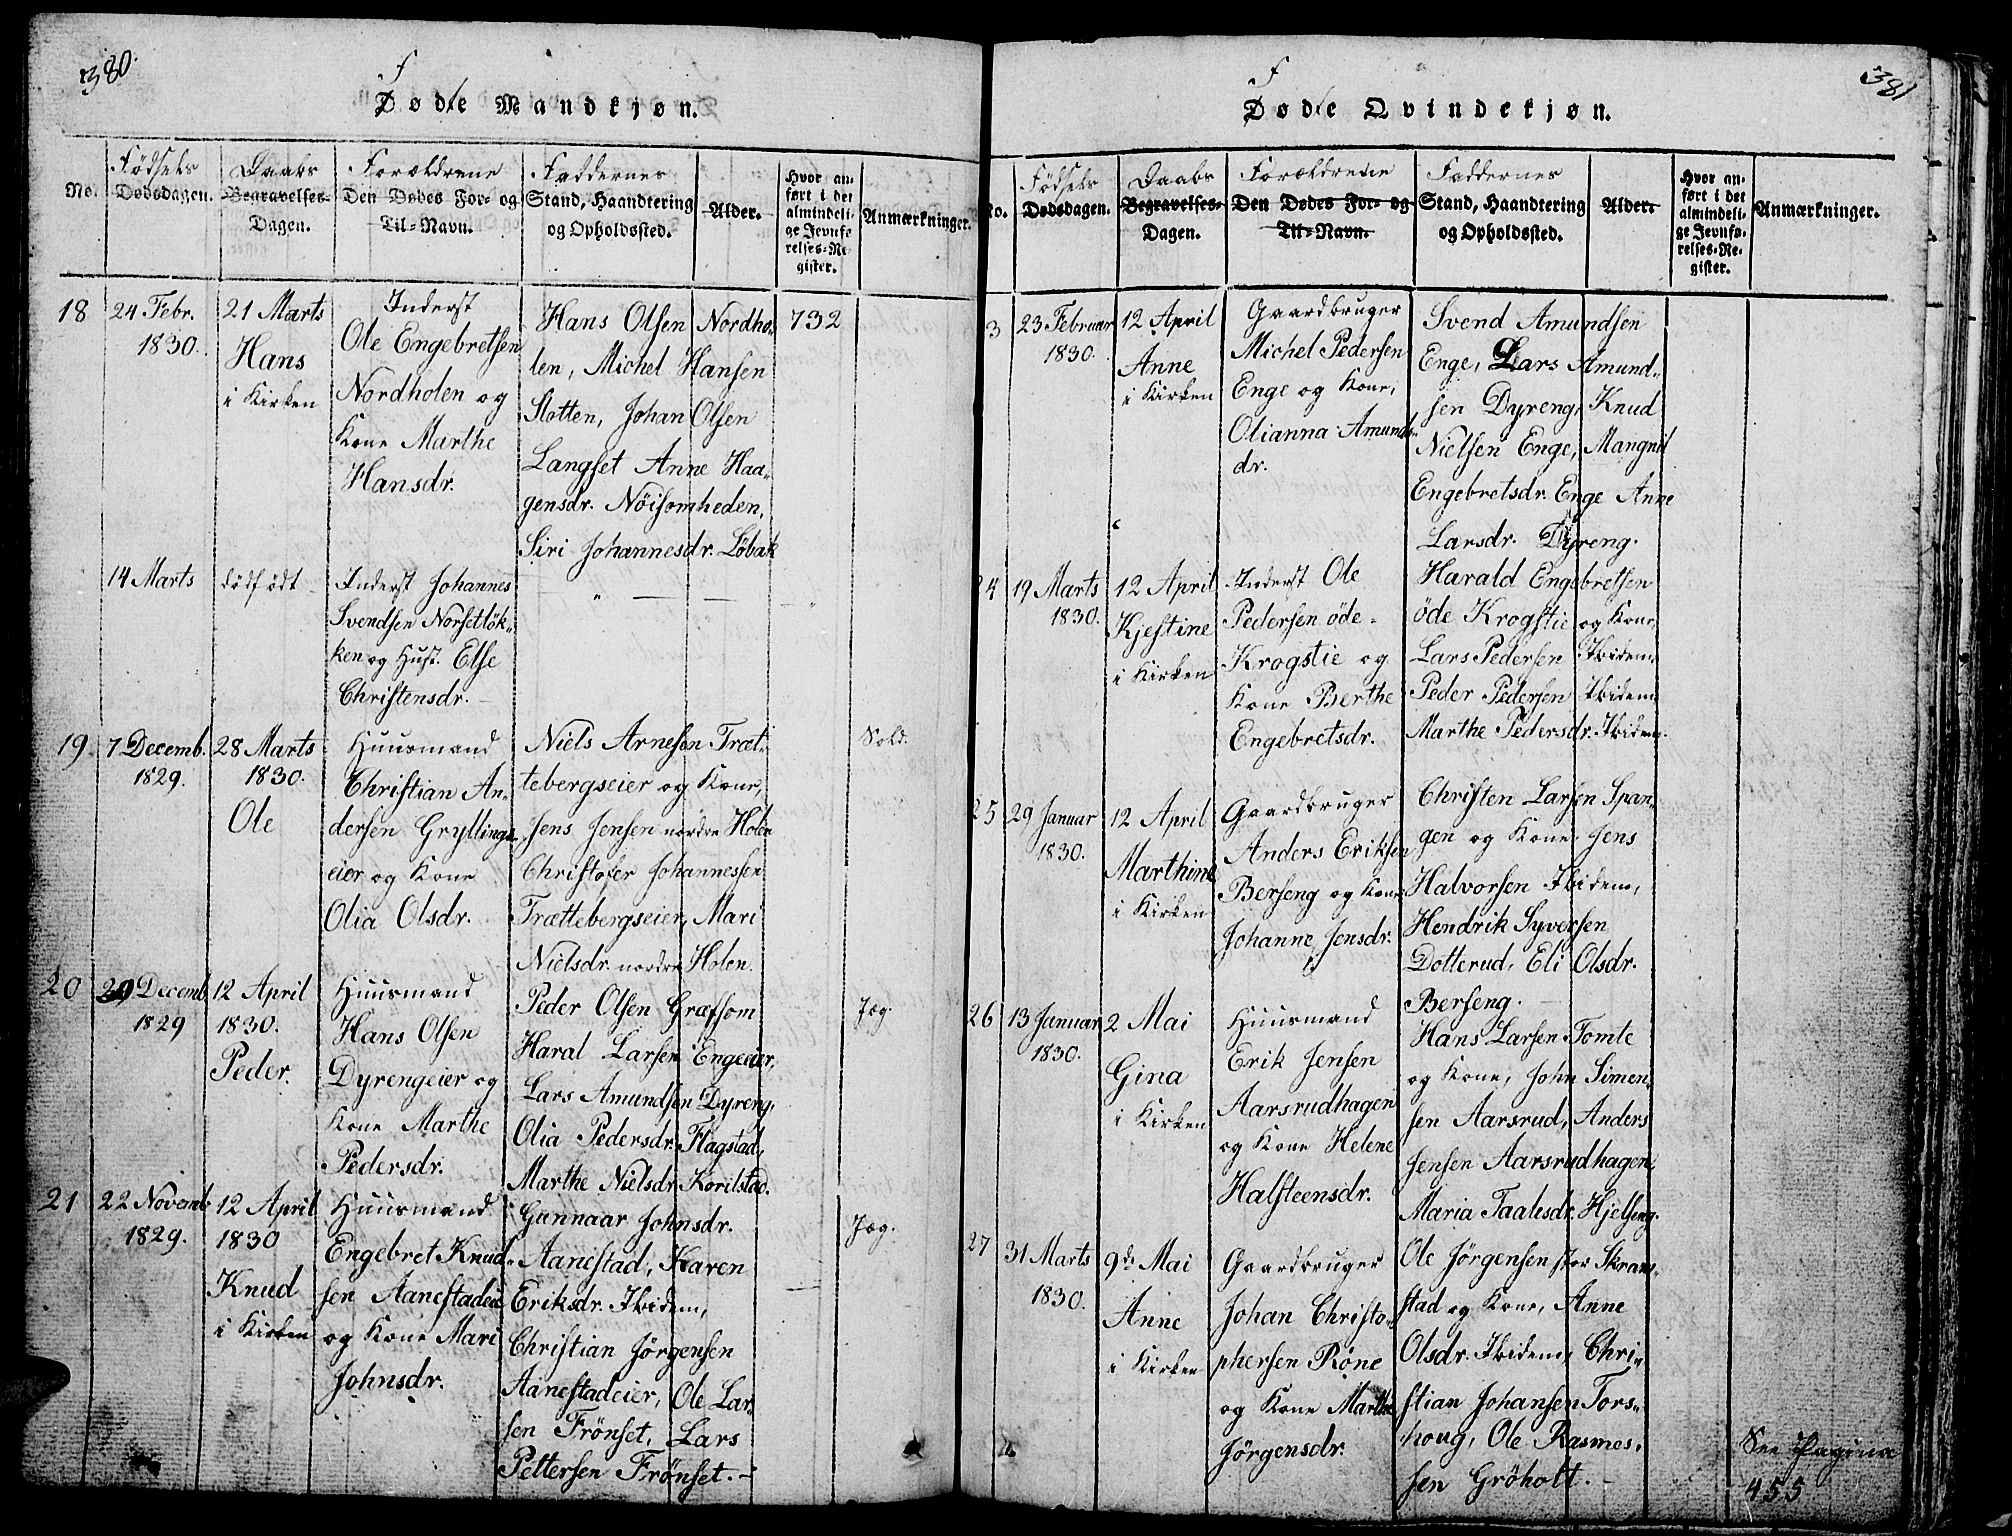 380.
Fødte Mandkjøn.
No.
Fødsels
Dødsdagen.
Daabs
Begravelses-
Dagen.
Forældrene
Den Dødes For- og
Til-Navn.
Faddernes
Stand, Haandtering
og Opholdssted.
Alder.
Hvor an-
ført i det
almindeli-
ge Jevnfø-
relses-Re-
gister.
Anmærkninger.
18
24 Febr.
1830.
21 Marts
Hans
i Kirken
Inderst
Ole Engebretsen
Nordholen og
Kone Marthe
Hansdr.
Hans Olsen Nordho-
len, Michel Hansen
Slotten, Johan Olsen
Langset Anne Haa-
gensdr. Nöisomheden,
Siri Johannesdr. Löbak
732
14 Marts
dödfödt
Inderst Johannes
Svendsen Norsetlök-
ken og Hust. Else
Christensdr.
19.
7 Decemb.
1829.
28 Marts
1830.
Ole
Huusmand
Christian An-
dersen Gryllings-
eier og Kone
Olia Olsdr.
Niels Arnesen Træt-
tebergseier og Kone,
Jens Jensen nordre Holen
Christofer Johannessen
Trættebergseier, Mari
Nielsdr. nordre Holen.
Sold.
20
29 Decemb.
1829
12 April
1830.
Peder.
Huusmand
Hans Olsen
Dyrengeier og
Kone Marthe
Pedersdr.
Peder Olsen Græfsom
Haral Larsen Engeeier,
Lars Amundsen Dyreng,
Olia Pedersdr. Flagstad,
Marthe Nielsdr. Korilstad.
Jæg.
21
22 Novemb
1829.
12 April
1830
Knud
i Kirken
Huusmand
Engebret Knud-
sen Aanestadeie
og Kone Mari
Johnsdr.
Gunnaar Johnsdr.
Aanestad, Karen
Eriksdr. Ibidem,
Christian Jörgensen
Aanestadeier, Ole Lar-
sen Frönset, Lars
Pettersen Frönset.
Jæg.
381
Fødte Qvindekjøn.
No.
Fødsels
Dødsdagen.
Daabs
Begravelses-
Dagen.
Forældrene
Den Dødes For- og
Til-Navn.
Faddernes
Stand, Haandtering
og Opholdssted.
Alder.
Hvor an-
ført i det
almindeli-
ge Jevnfø-
relses-Re-
gister.
Anmærkninger.
3
23 Februar
1830.
12 April
Anne
i Kirken
Gaardbruger
Michel Pedersen
Enge og Kone,
Olianna Amunds-
dr.
Svend Amundsen
Enge, Lars Amund-
sen Dyreng, Knud
Nielsen Enge, Mangnil
Engebretsdr. Enge Anne
Larsdr. Dyreng.
24
19 Marts
1830.
12 April
Kjestine
i Kirken
Inderst Ole
Pedersen öde-
Krogstie og
Kone Berthe
Engebretsdr.
Harald Engebretsen
öde Krogstie og Kone,
Lars Pedersen Ibidem,
Peder Pedersen Ibidem
Marthe Pedersdr. Ibidem.
25
29 Januar
1830.
12 April
Marthine
i Kirken
Gaardbruger
Anders Eriksen
Berseng og Kone
Johanne Jensdr.
Christen Larsen Span-
gen og Kone Jens
Halvorsen Ibidem,
Hendrik Syversen
Dotterud, Eli Olsdr.
Berseng.
26
13 Januar
1830.
2 Mai
Gina
i Kirken
Huusmand
Erik Jensen
Aarsrudhagen
og Kone Helene
Halsteensdr.
Hans Larsen Tomte
og Kone, John Simen-
sen Aarsrud, Anders
Jensen Aarsrudhagen,
Maria Taalesdr. Hjelseng.
27
31 Marts
1830.
9de Mai
Anne
i Kirken
Gaardbruger
Johan Christo-
phersen Röne
og Kone Marthe
Jörgensdr.
Ole Jörgensen stor Skram-
stad og Kone, Anne
Olsdr. Ibidem, Chri-
stian Johansen Tors-
houg, Ole Rasmes-
sen Gröholt.
See Pagina
455